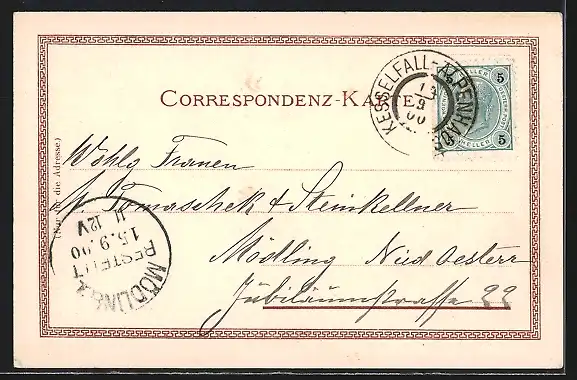 CORRESPONDENZ-KARTE
KESSELFALL-ALPENHAUS
13
9
00
5 5
HELLER
5 5
(Nur für die Adresse.)
Wohlg Frauen
Tomaschek & Steinkellner
Mödling Nied Oesterr
Jubiläumstrasse 22
MÖDLING
BESTELLT
15.9.00
11 12V